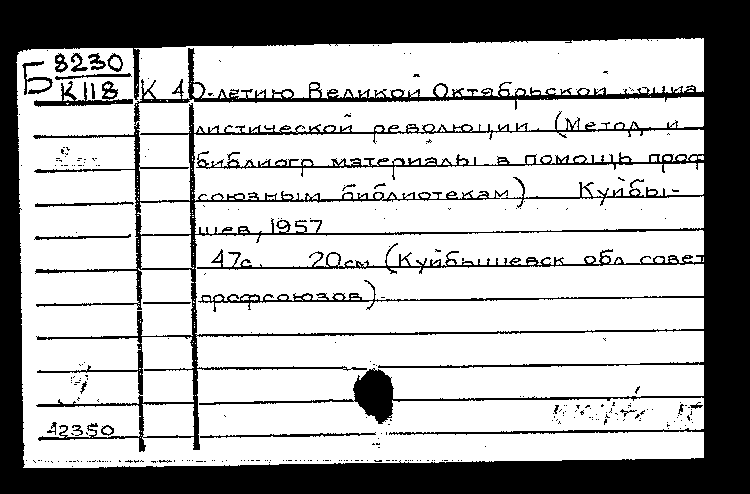 Б 8230
К118
К 40-летию Великой Октябрьской социа
листической революции. (Метод. и
библиогр материалы в помощь проф
союзным библиотекам). Куйбы-
шев, 1957
47с. 20см (Куйбышевск обл совет
профсоюзов).
42350